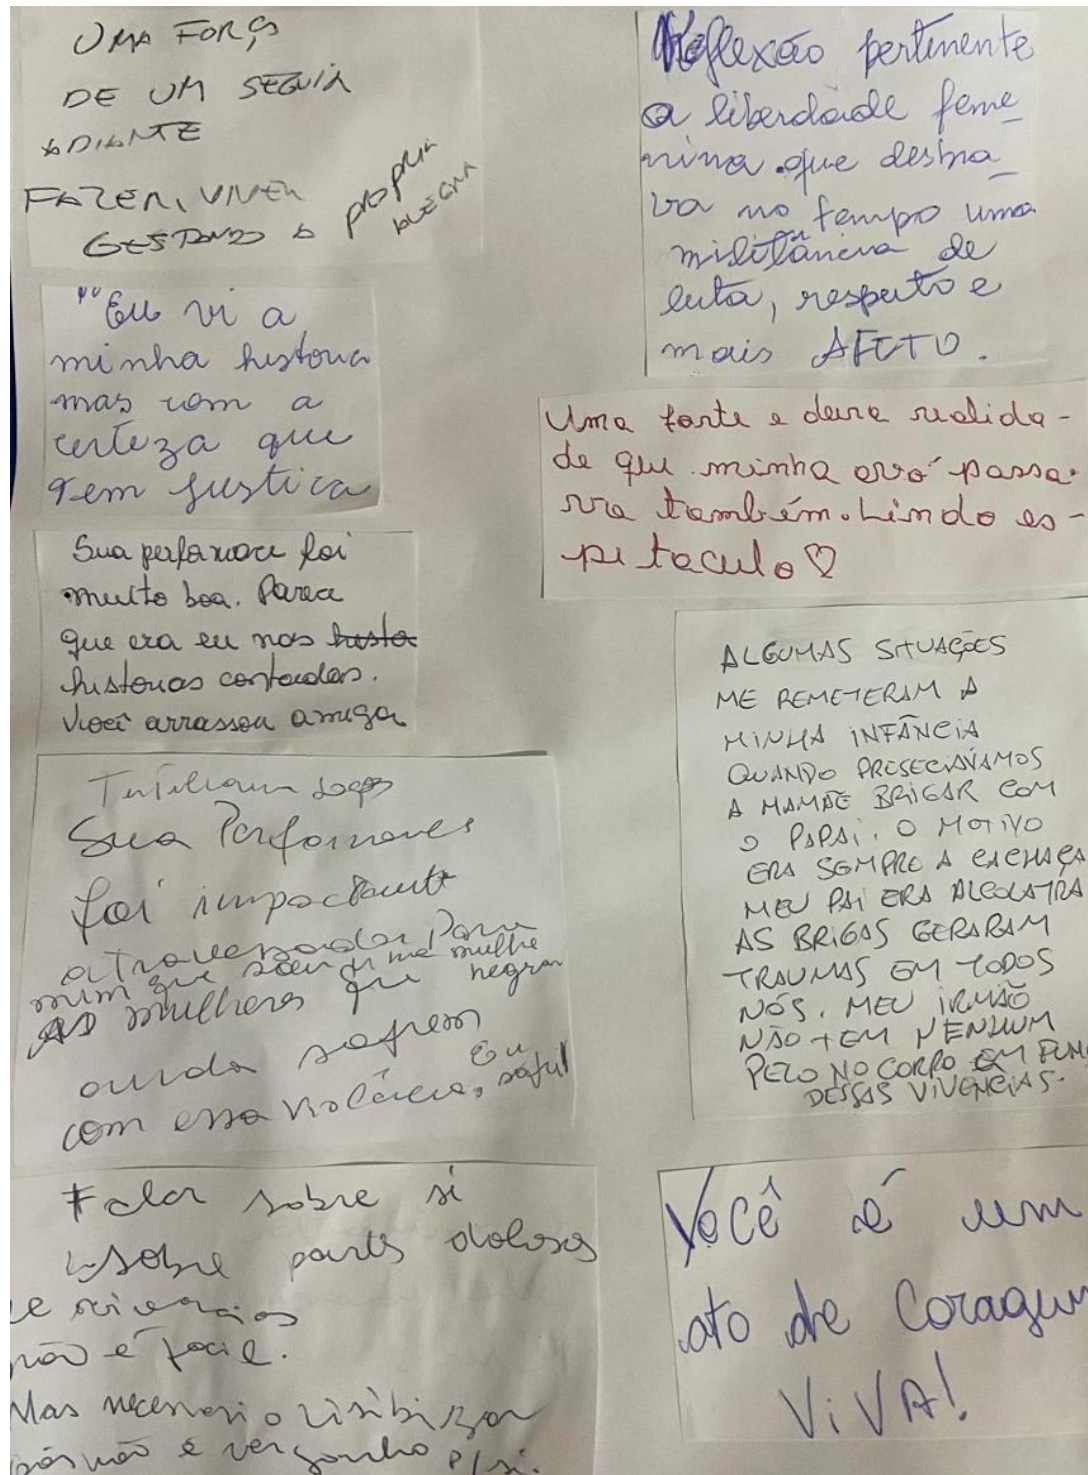 UMA FORÇA
DE UM SEGUIR
ADIANTE
FAZER, VIVER
GESTANDO A PROPRIA
ALEGRIA
"Eu vi a
minha historia
mas com a
certeza que
tem justiça
Sua perfomace foi
muito boa. Parece
que era eu nas histo
historias contadas.
Você arrassou amiga
Sua Perfomances
foi impactante
atravessador Para
mim que sou uma mulhe
negra
AS mulheres que
ainda sofrem
com essa violência, Eu
safri!
Falar sobre si
sobre partes dolosas
e vivencias
não é facil.
Mas necessario visibizar
pois não é vergonha p/ si.
Reflexão pertinente
a liberdade feme_
nina que desbra_
va no tempo uma
militância de
luta, respeito e
mais AFETO.
Uma forte e dura realida-
de que minha avó passa-
va também. Lindo es-
petaculo ♡
ALGUMAS SITUAÇÕES
ME REMETERAM A
MINHA INFÂNCIA
QUANDO PRESECIÁVAMOS
A MAMÃE BRIGAR COM
O PAPAI. O MOTIVO
ERA SEMPRE A CACHAÇA
MEU PAI ERA ALCOLATRA
AS BRIGAS GERARAM
TRAUMAS EM TODOS
NÓS. MEU IRMÃO
NÃO TEM NENHUM
PELO NO CORPO EM FUN
DESSAS VIVENCIAS.
Você é um
ato de Coragem
VIVA!